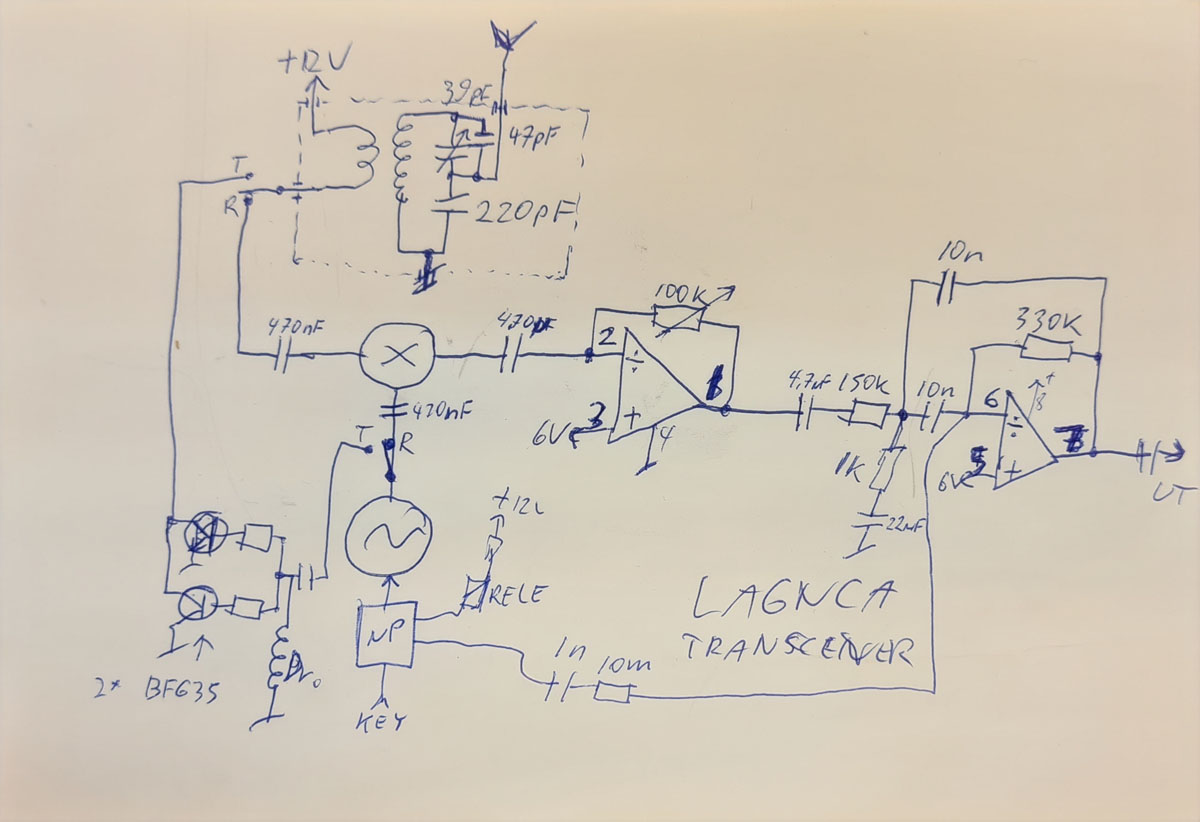 +12V
39pF
47pF
T
R
220pF
10n
100K
330K
470nF
X
470pF
2
÷
1
4,7uF
150K
10n
6
÷
8
+
470nF
6V
3
+
4
7
T
R
1K
6V
5
+
UT
+12V
22nF
RELE
LA6NCA
TRANSCEIVER
NP
1n
10m
2* BFG35
Dr.
KEY